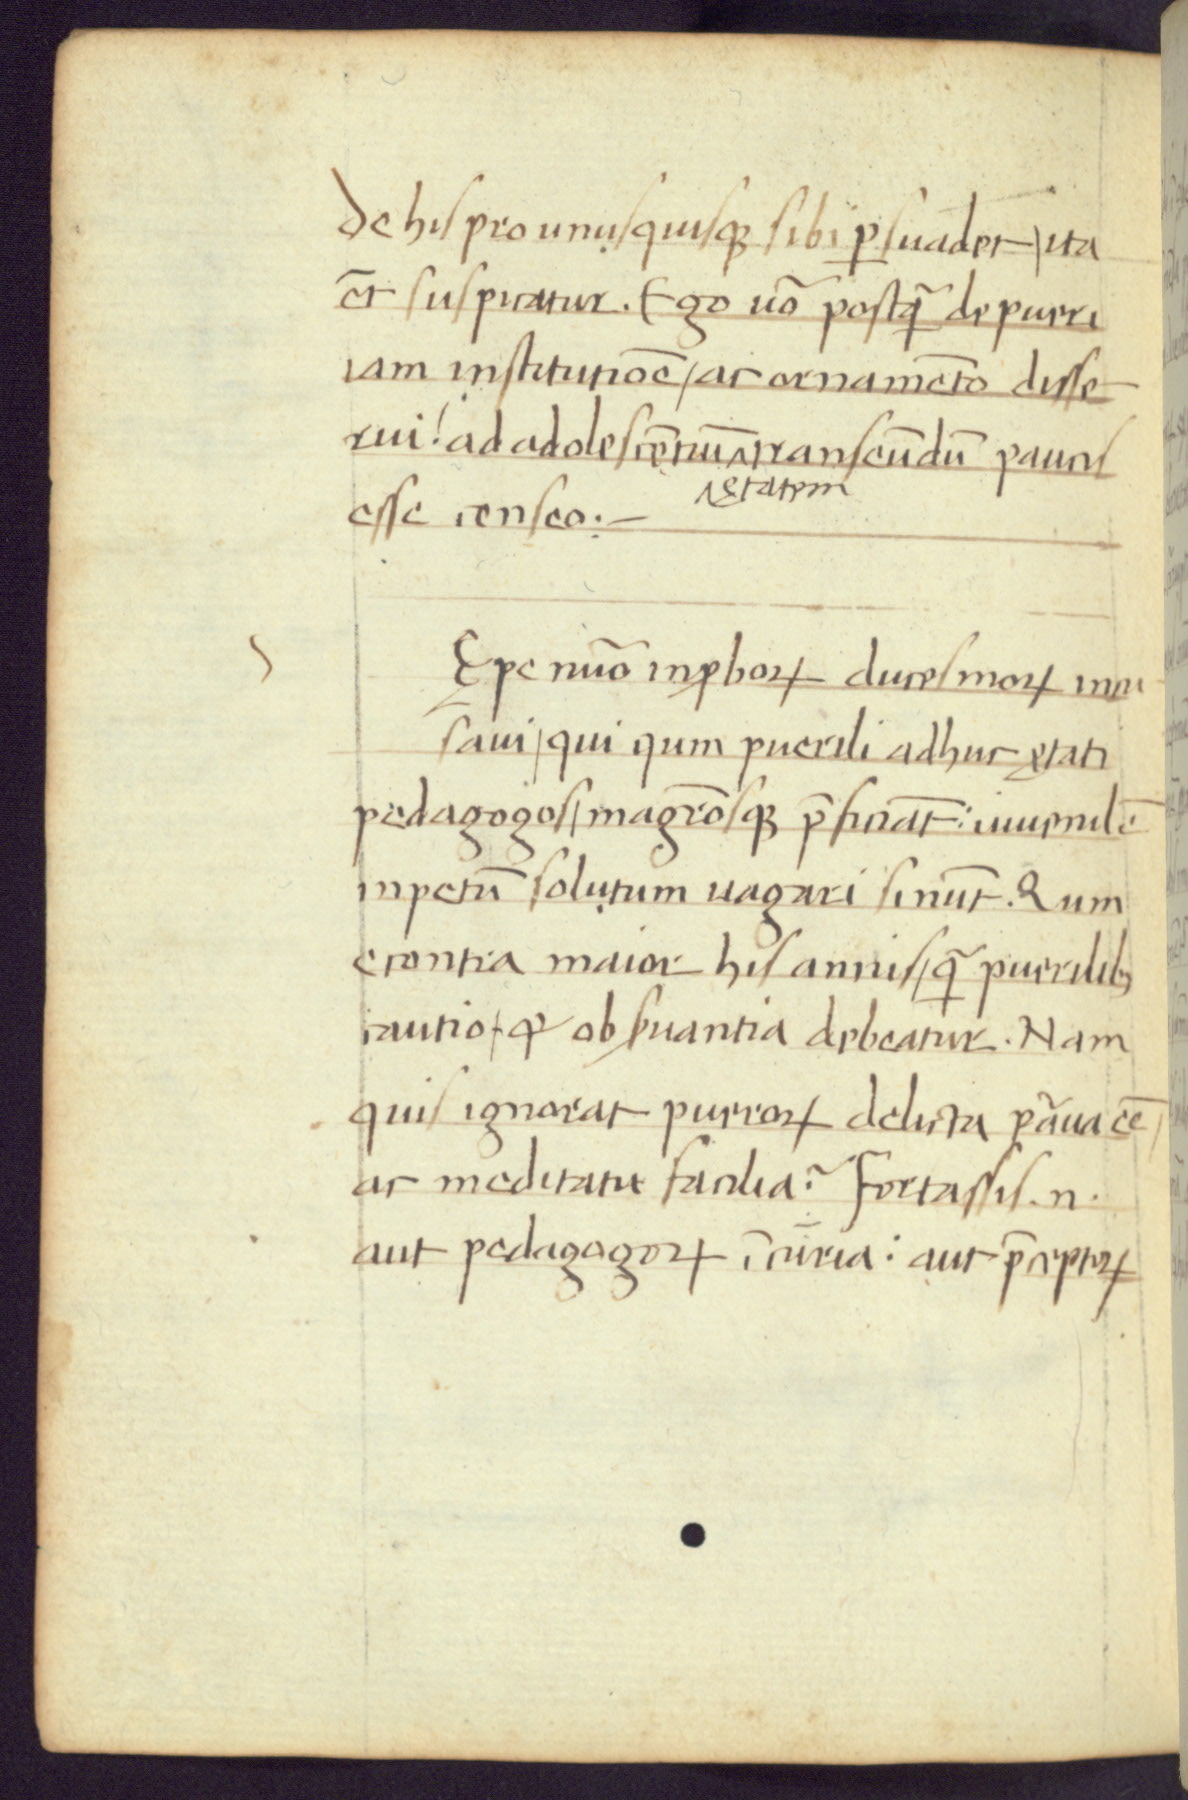 De his pro unusquisqꝫ sibi ꝑsuadet / ita
et̄ suspicatur. Ego uo᷒ postq̃ de pueri
iam institutiōe / ac ornamēto disse
rui! ad adolescētiū ^ transeūdū paucis
^ ętatem
esse censeo.—
s
Ępe nūo inp̱boꝝ duces moꝝ incu
saui / qui qum puerili adhuc ętati
pedagogos / magr̄osqꝫ p̄ficiāt: iuuenilē
inpetū solutum uagari sinūt. Qum
econtra maior his annis / q̃ puerilibꝫ
cautio / qꝫ obṣuantia debeatur. Nam
quis ignorat pueroꝝ delicta pāua eē /
ac meditatu facilia? Fortassis .n.
aut pedagogoꝝ īcūria: aut p̄ceptoꝝ